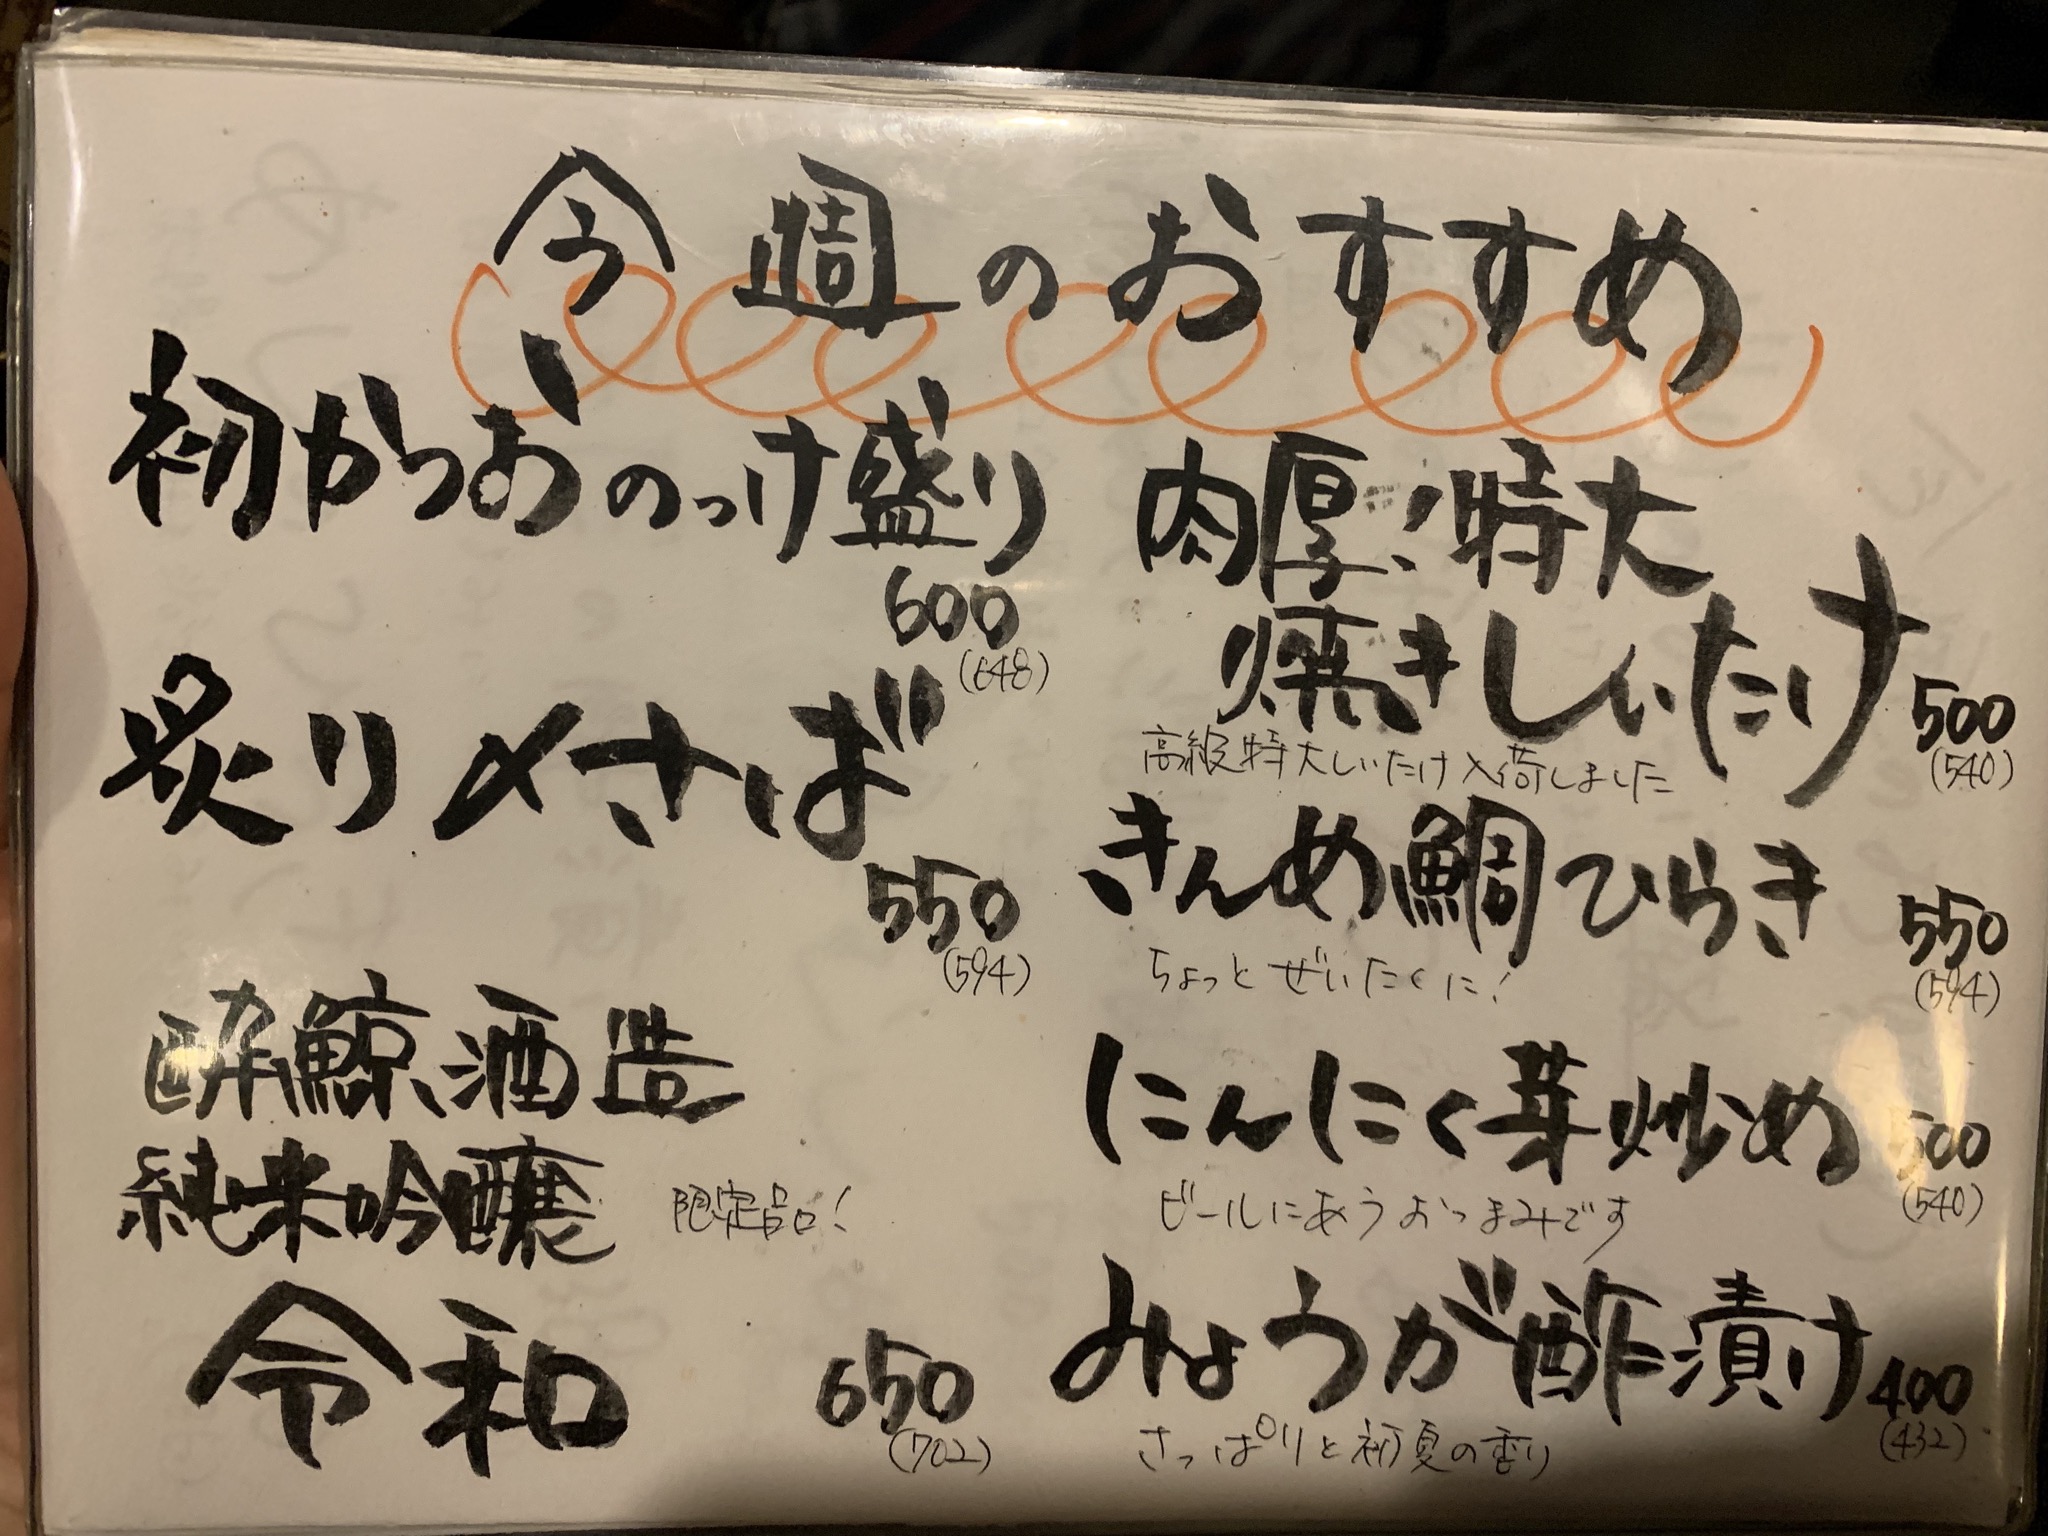 今週のおすすめ
初かつおのっけ盛り
600
(648)
炙り〆さば
550
(594)
酔鯨酒造
純米吟醸 限定品!
令和 650
(702)
肉厚!特大
焼きしいたけ 500
(540)
高級特大しいたけ入荷しました
きんめ鯛ひらき 550
(594)
ちょっとぜいたくに!
にんにく芽炒め 500
(540)
ビールにあうおつまみです
みょうが酢漬け 400
(432)
さっぱりと初夏の香り